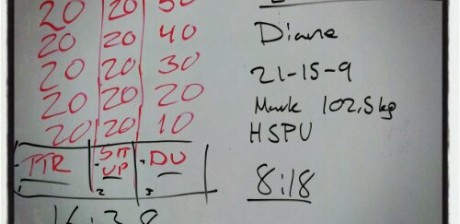 20 20 50
20 20 40
20 20 30
20 20 20
20 20 10
TTR SIT UP DU
2 3
16:38
Diane
21-15-9
102,5kg
HSPU
8:18